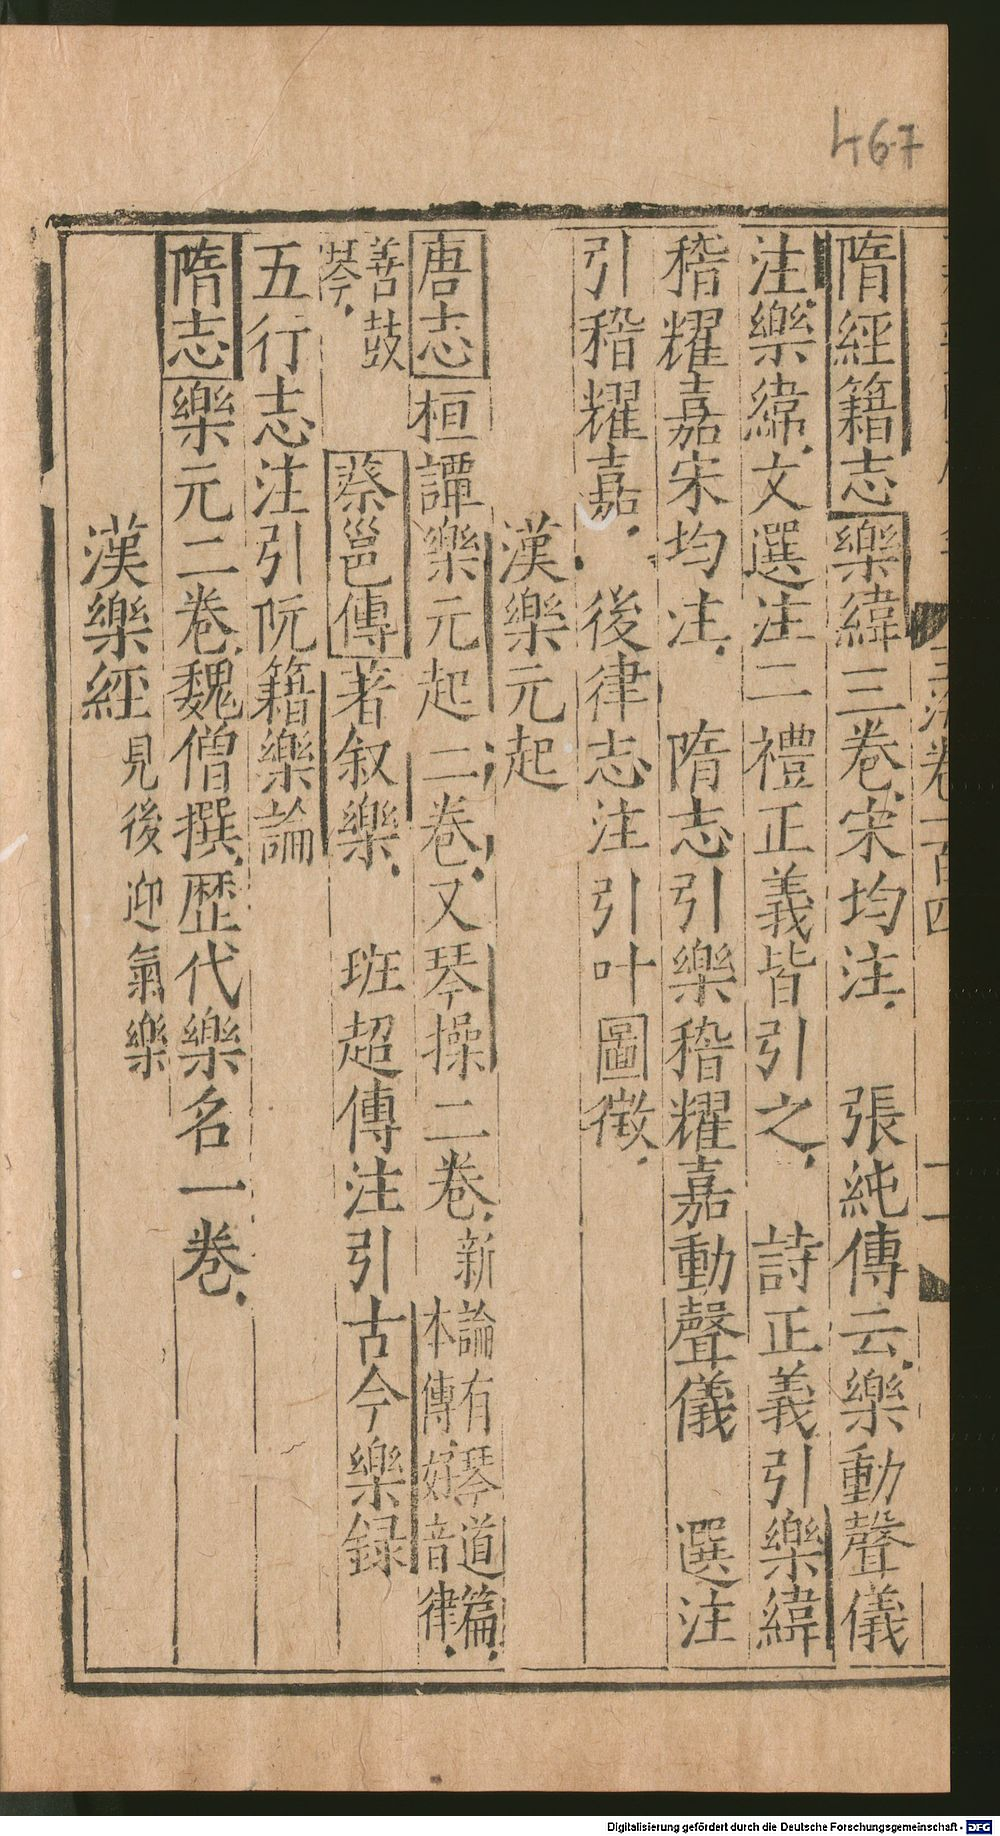 467
隋經籍志樂緯三卷宋均注　張純傳云樂動聲儀
注樂緯文選注二禮正義皆引之　詩正義引樂緯
稽耀嘉宋均注　隋志引樂稽耀嘉動聲儀　選注
引稽耀嘉　後律志注引叶圖徵
漢樂元起
唐志桓譚樂元起二卷又琴操二卷新論有琴道篇本傳好音律
善鼓琴　蔡邕傳著叙樂　班超傳注引古今樂録
五行志注引阮籍樂論
隋志樂元二卷魏僧撰歷代樂名一卷
漢樂經見後迎氣樂
Digitalisierung gefördert durch die Deutsche Forschungsgemeinschaft - DFG